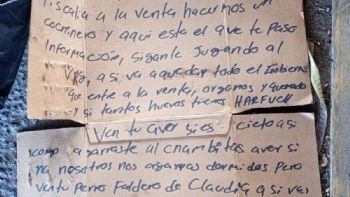 Fiscalia a la venta hacemos un
cocranero y aqui esta el que te paso
información, sigante Jugando al
Vrg, asi va aquedar todo el Gobierno
que entre a la venta, organos y guardo
y si tantos huevos tienes HARFUCH
Ven tu aver si es cieto asi
como agarraste al cnambitas aver si
a nosotros nos agarras dormidos pero
ventu Perro Faldero de Claudia asi vas